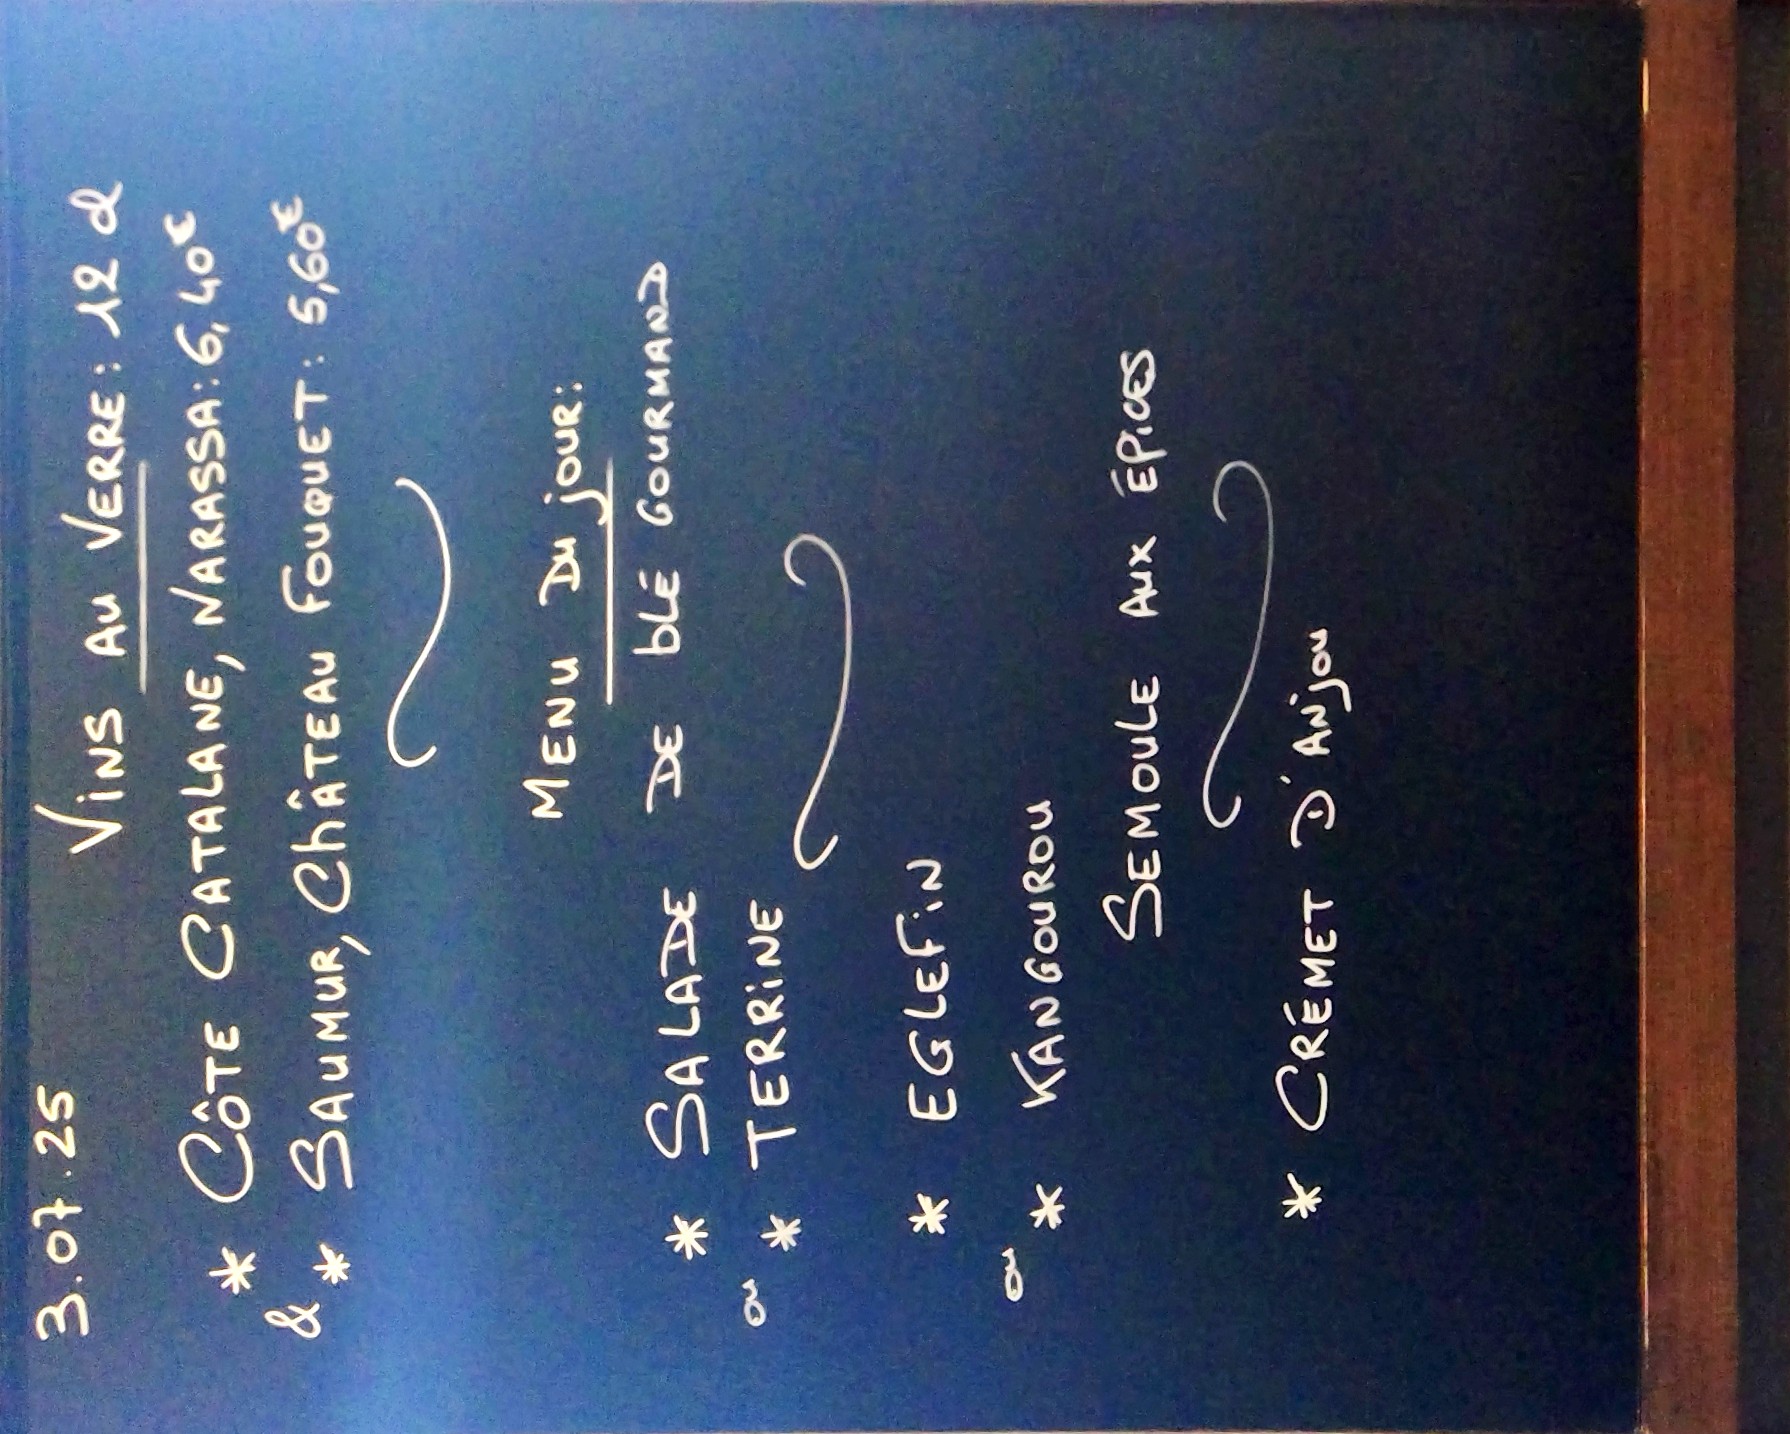 3.07.25
Vins au Verre : 12 cl
* Côte Catalane, Narassa : 6,40€
& * Saumur, Château Fouquet : 5,60€
Menu du jour :
* Salade de blé gourmand
ou * Terrine
* Eglefin
ou * Kangourou
Semoule aux épices
* Crémet d'Anjou